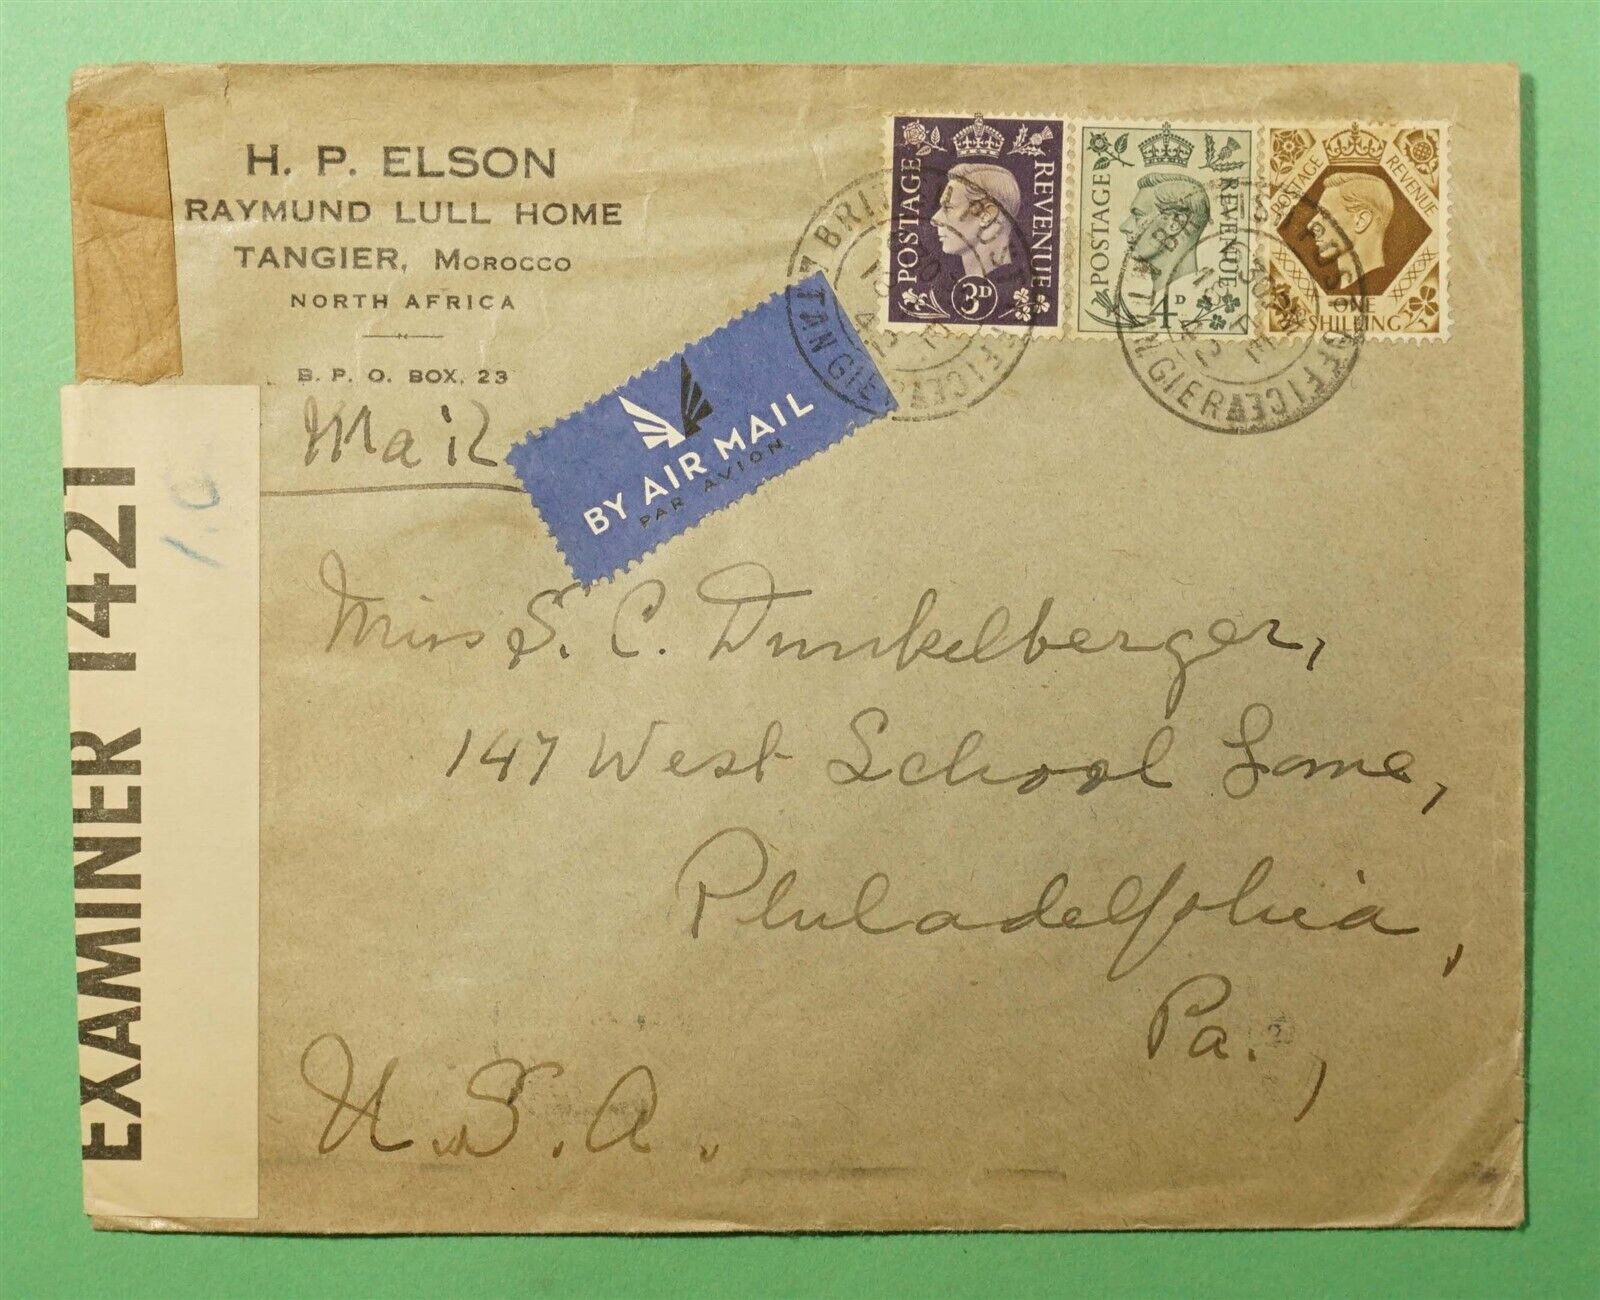 H. P. ELSON
RAYMUND LULL HOME
TANGIER, MOROCCO
NORTH AFRICA
B. P. O. BOX. 23
Mail
POSTAGE REVENUE
3D
POSTAGE REVENUE
4D
POSTAGE REVENUE
ONE SHILLING
BRITISH POST OFFICE
TANGIER
BRITISH POST OFFICE
TANGIER
BY AIR MAIL
PAR AVION
EXAMINER 1421
Miss S. C. Dunkelberger,
147 West School Lane,
Philadelphia,
Pa.,
U.S.A.